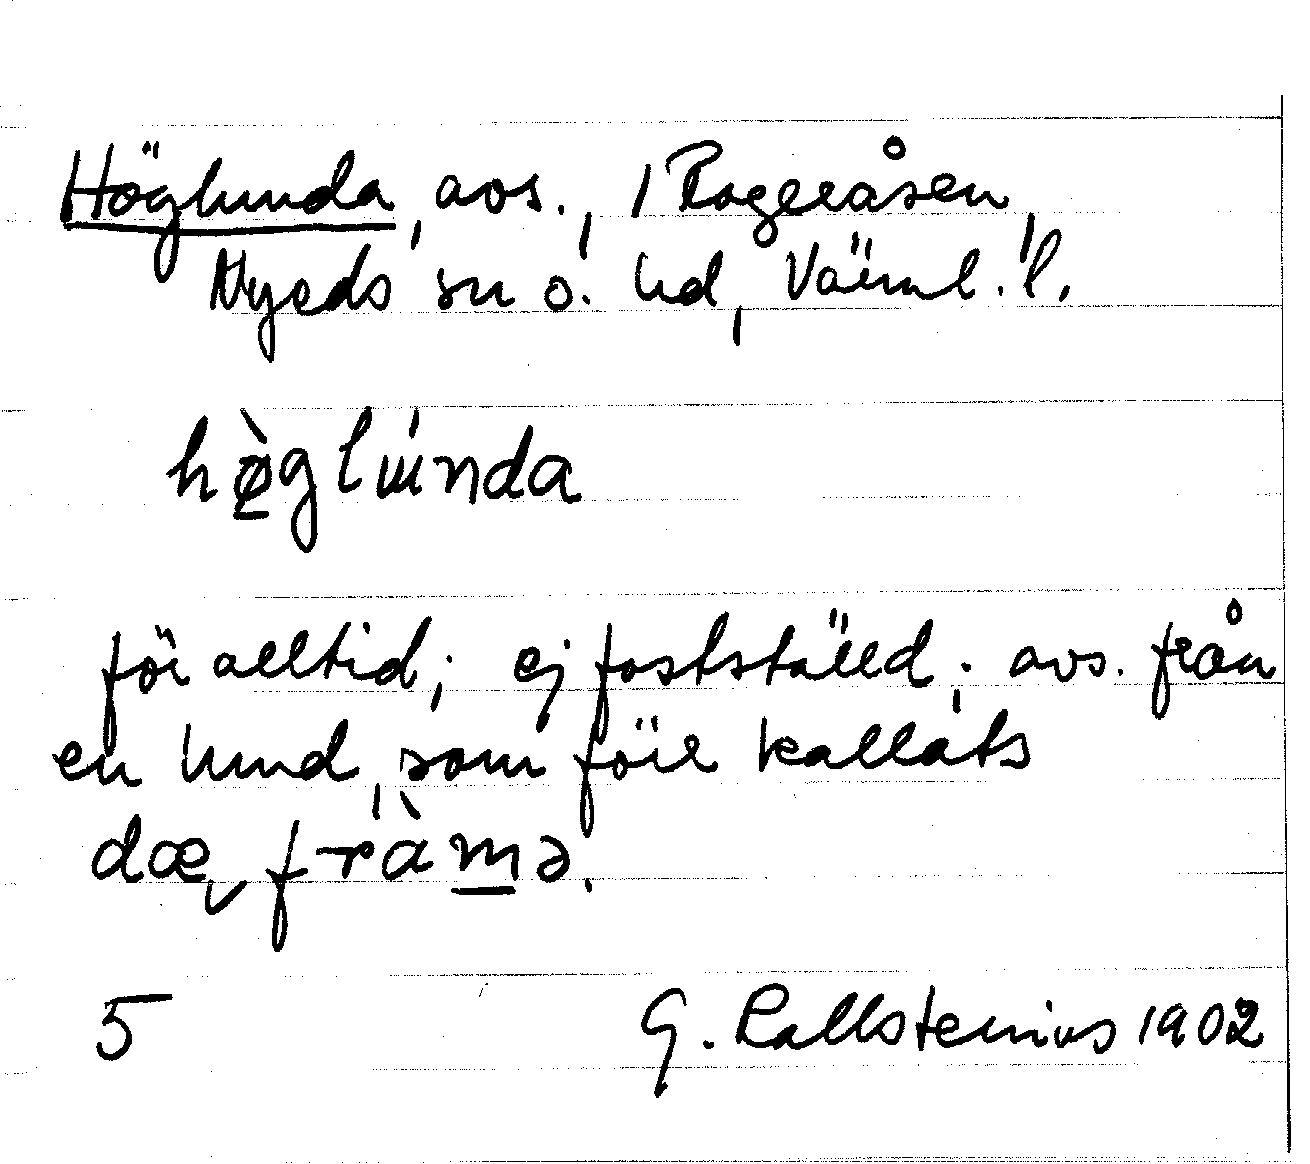 Höglunda, avs., i Rageråsen,
Nyeds sn o. hd, Värml. l.
hø̀glúnda
för alltid; ej fastställd; avs. från
en lund, som förr kallats
dæ, fràmə.
5 G. Kallstenius 1902